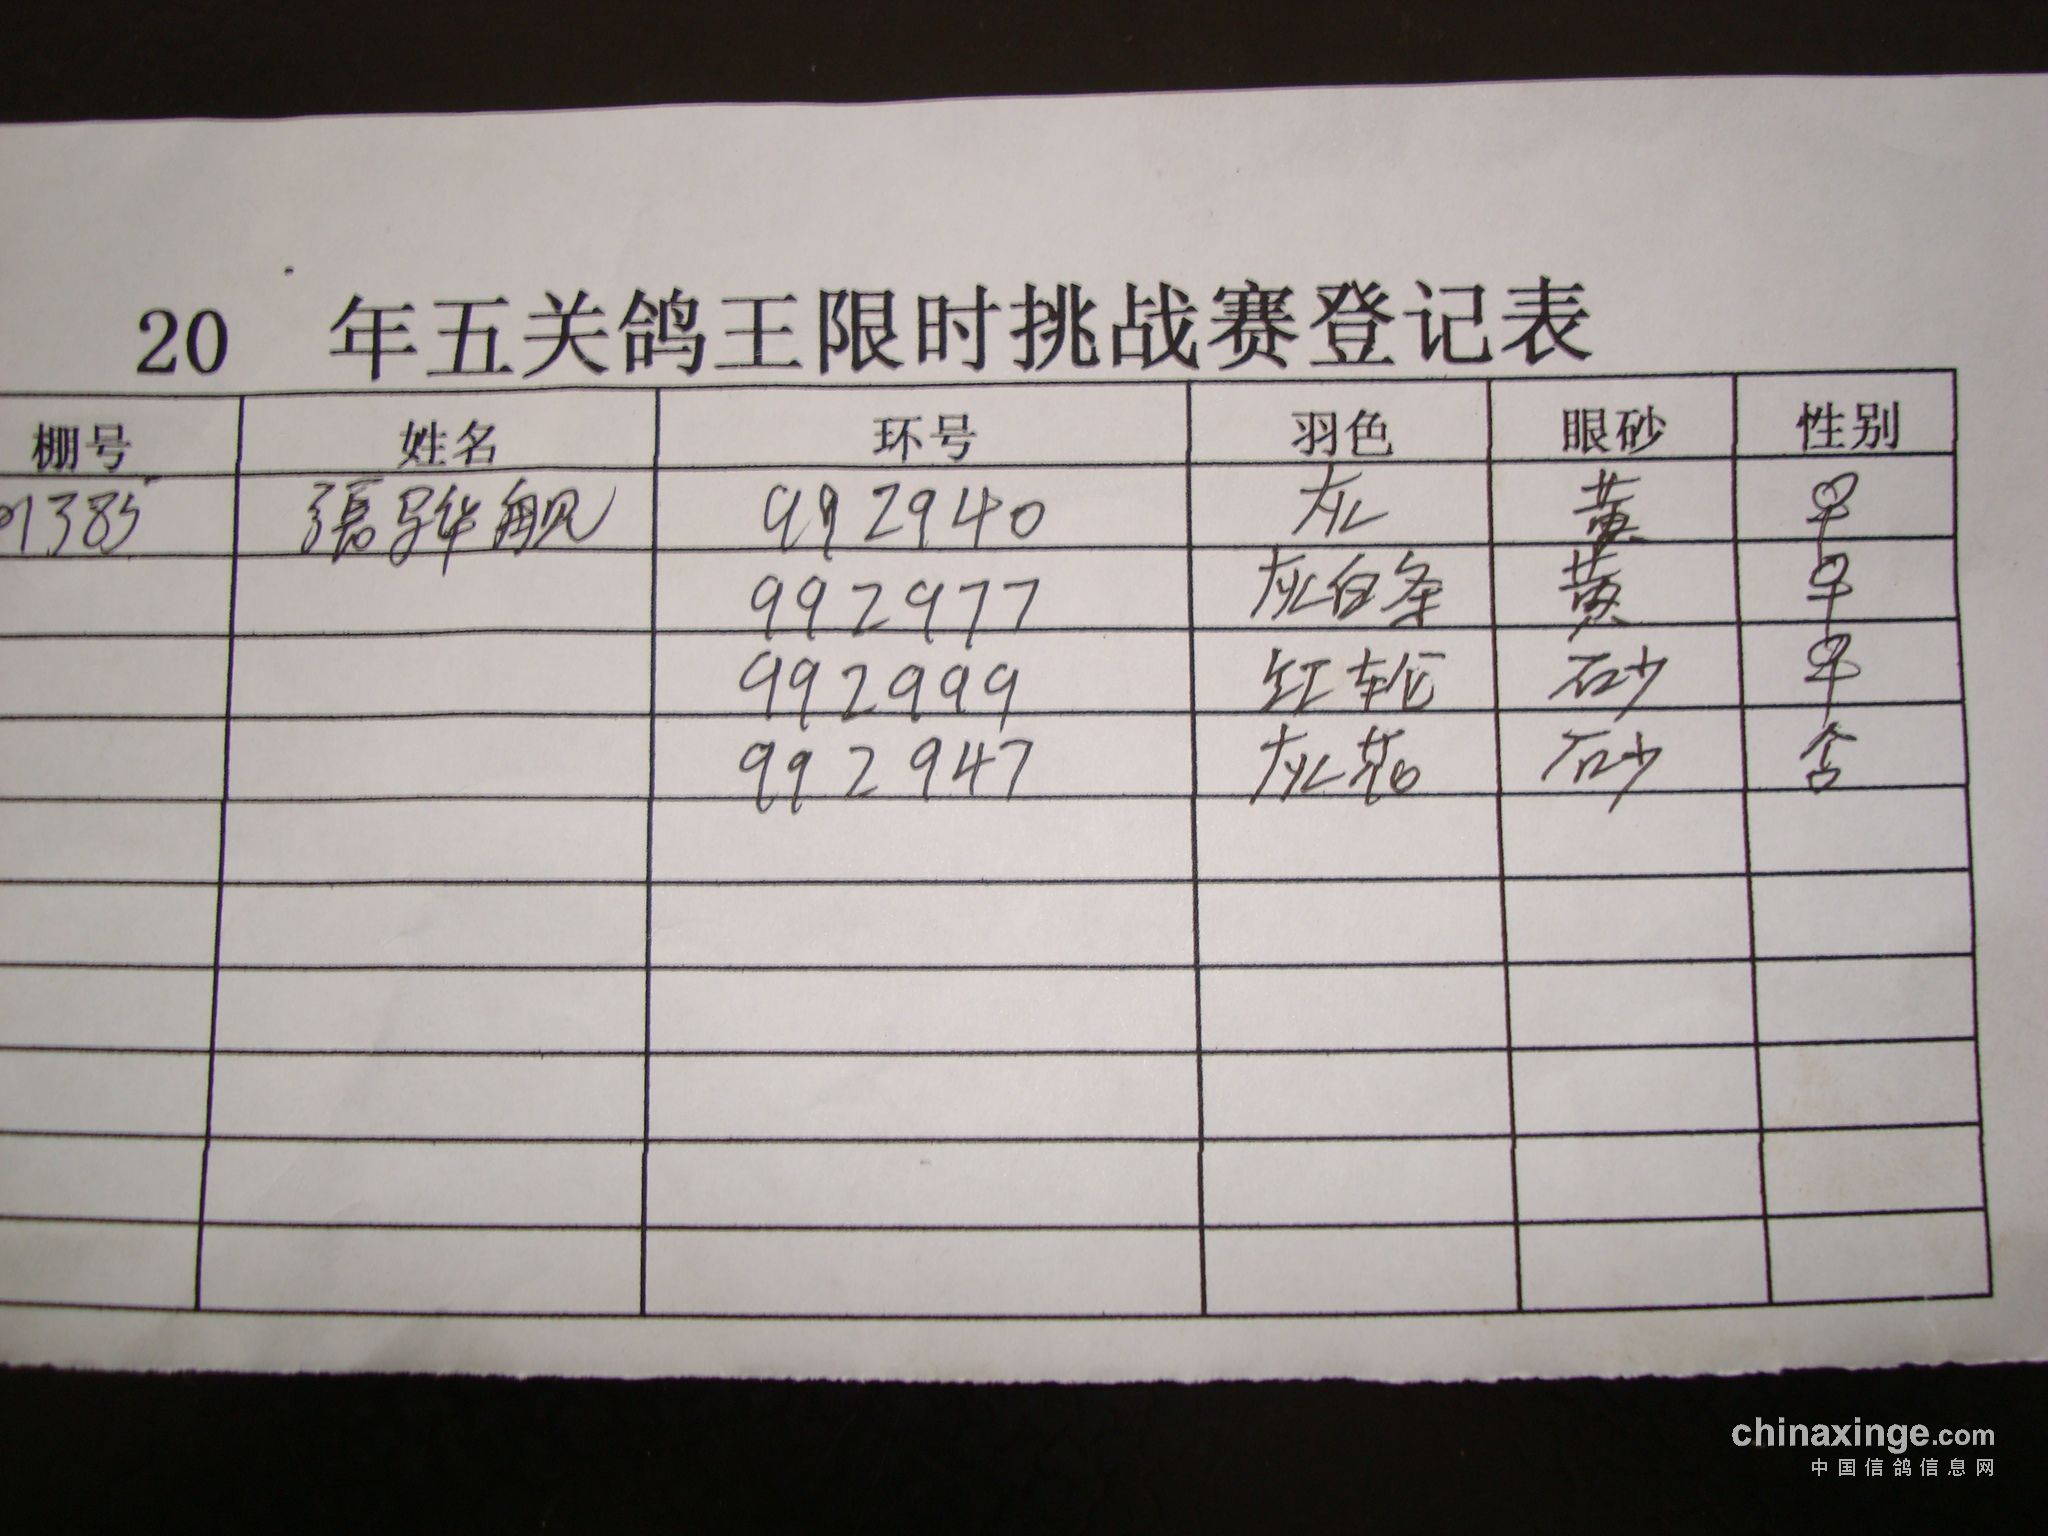 20 年五关鸽王限时挑战赛登记表
棚号 姓名 环号 羽色 眼砂 性别
01385 張骅舰 992940 灰 黄 早
992977 灰白条 黄 早
992999 红轮 砂 早
992947 灰花 砂 含
chinaxinge.com
中国信鸽信息网